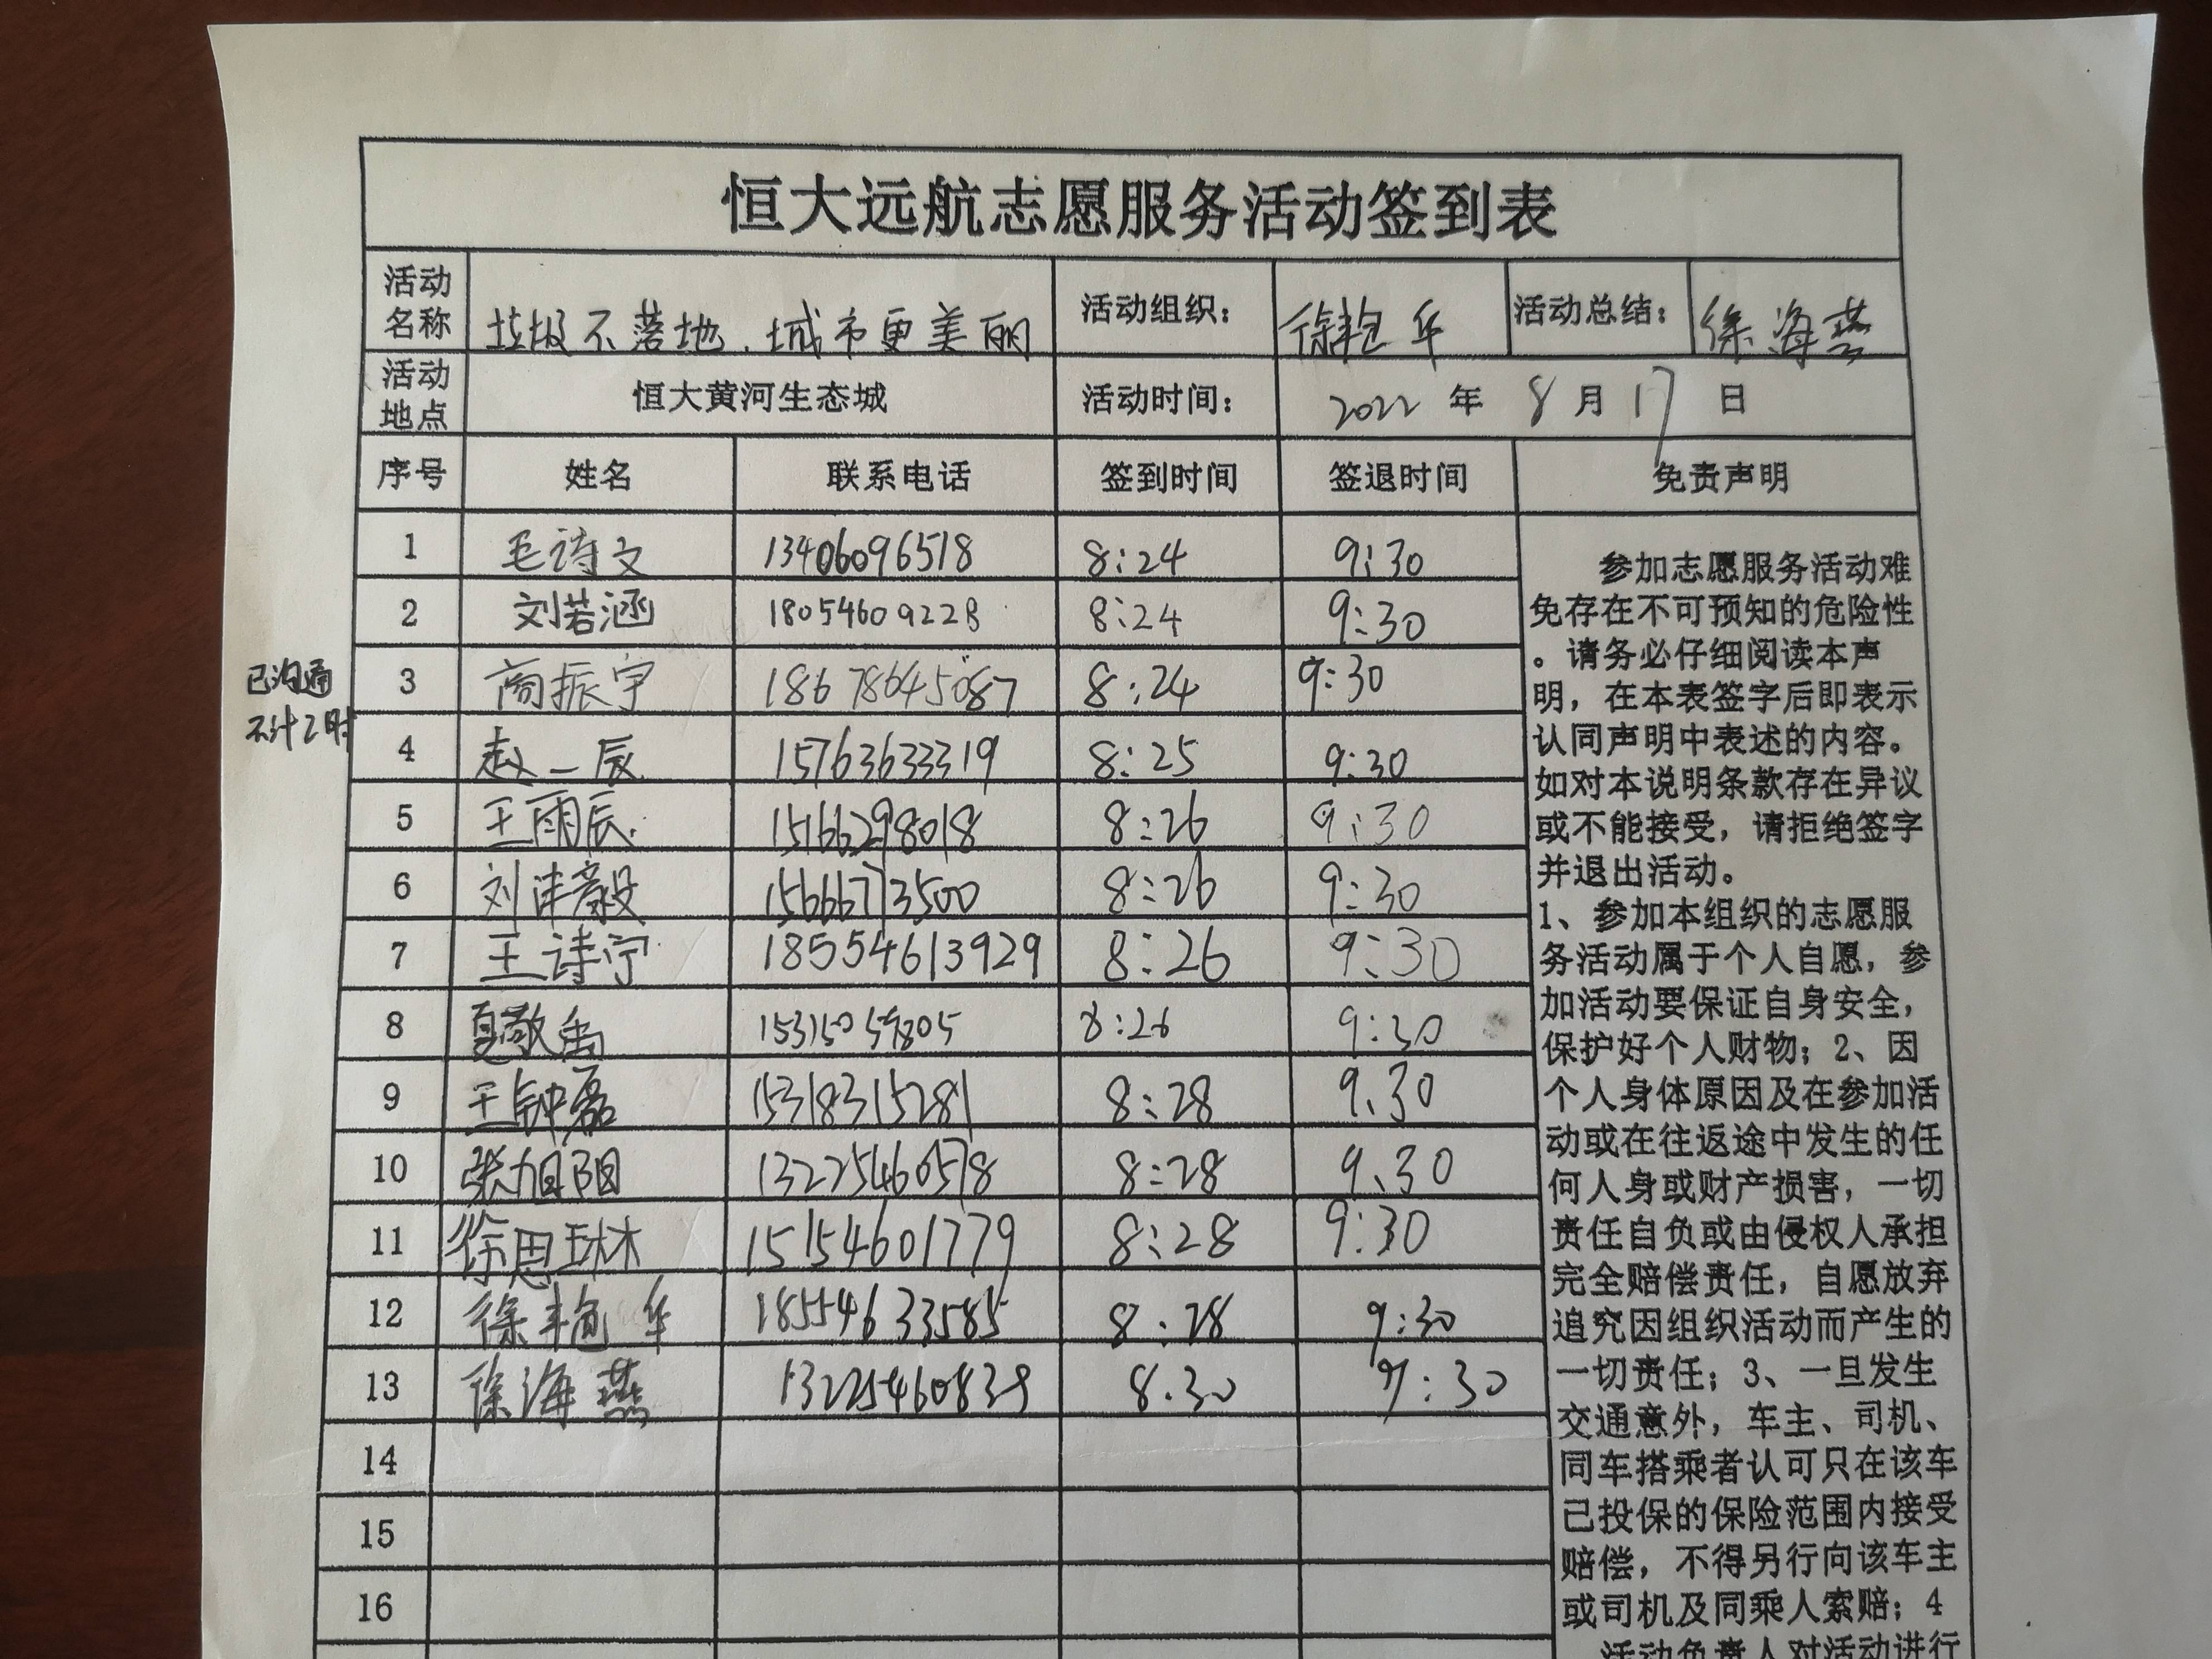 恒大远航志愿服务活动签到表
活动名称 垃圾不落地、城市更美丽 活动组织： 徐艳华 活动总结： 徐海燕
活动地点 恒大黄河生态城 活动时间： 2022 年 8 月 17 日
序号 姓名 联系电话 签到时间 签退时间 免责声明
1 毛诗文 13406096518 8:24 9:30
2 刘若涵 18054609228 8:24 9:30
已沟通
不计工时
3 商振宇 18678645087 8:24 9:30
4 赵一辰 15763633319 8:25 9:30
5 王雨辰 15166298018 8:26 9:30
6 刘沣毅 15666713500 8:26 9:30
7 王诗宁 18554613929 8:26 9:30
8 夏敬禹 15315059805 8:26 9:30
9 王钟磊 15318315281 8:28 9.30
10 张旭阳 13225460578 8:28 9.30
11 徐思琳 15154601779 8:28 9:30
12 徐艳华 18554633585 8:28 9:30
13 徐海燕 13225460839 8.30 9:30
14
15
16
参加志愿服务活动难
免存在不可预知的危险性
。请务必仔细阅读本声
明，在本表签字后即表示
认同声明中表述的内容。
如对本说明条款存在异议
或不能接受，请拒绝签字
并退出活动。
1、参加本组织的志愿服
务活动属于个人自愿，参
加活动要保证自身安全，
保护好个人财物；2、因
个人身体原因及在参加活
动或在往返途中发生的任
何人身或财产损害，一切
责任自负或由侵权人承担
完全赔偿责任，自愿放弃
追究因组织活动而产生的
一切责任；3、一旦发生
交通意外，车主、司机、
同车搭乘者认可只在该车
已投保的保险范围内接受
赔偿，不得另行向该车主
或司机及同乘人索赔；4
、活动负责人对活动进行